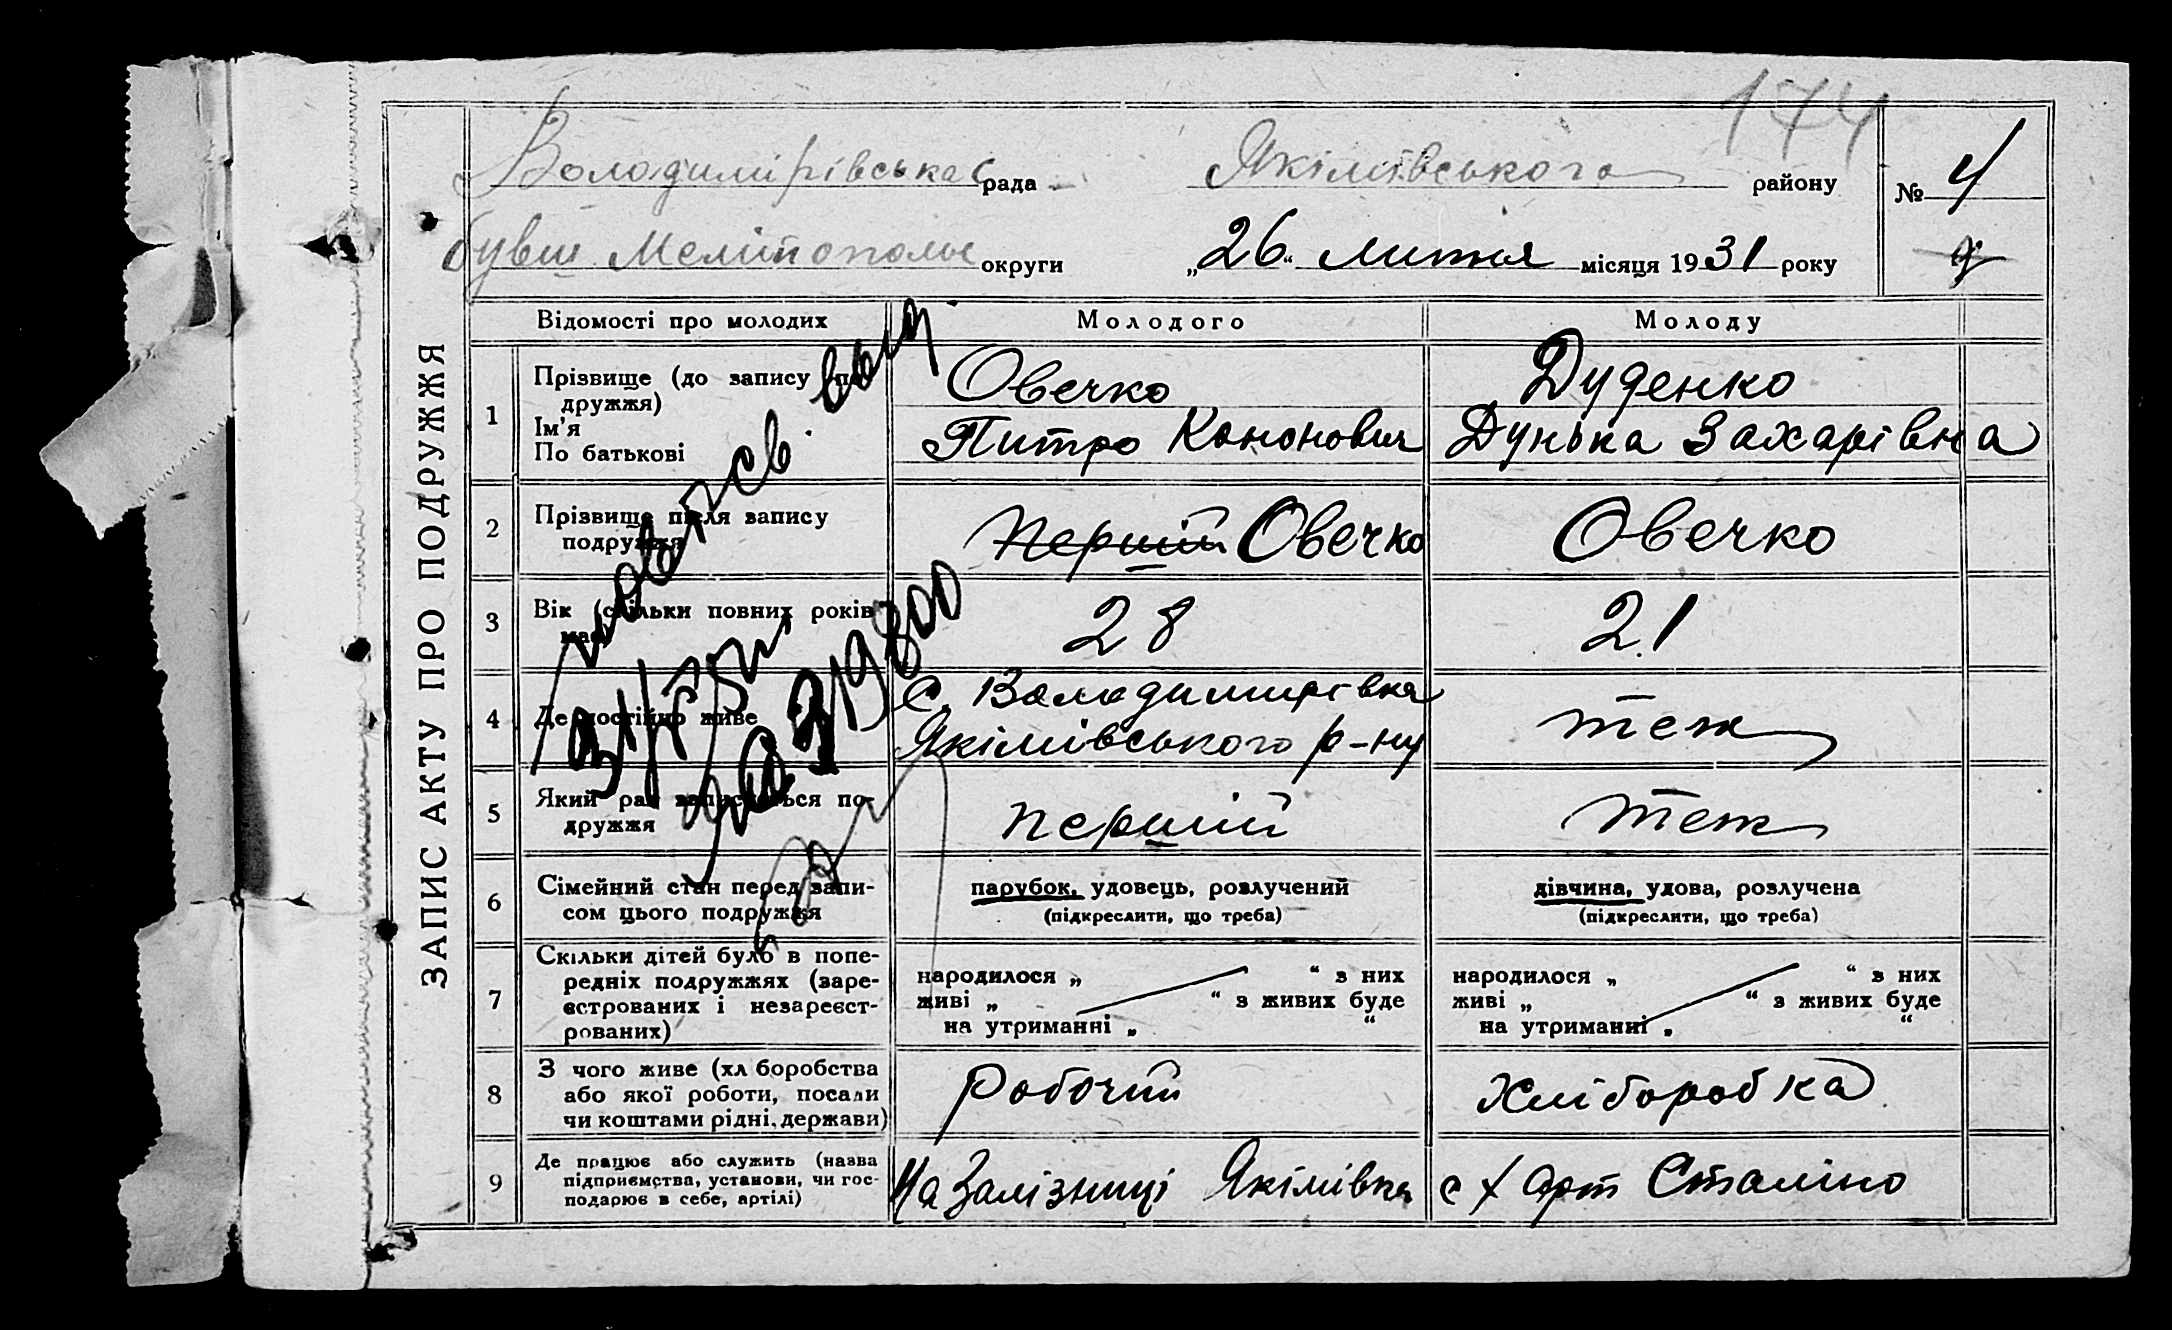 174
ЗАПИС АКТУ ПРО ПОДРУЖЖЯ
Володимирівська рада Якімівського району № 4
бувш Мелітополь округи „26“ лютня місяця 1931 року
Відомості про молодих Молодого Молоду
1 Прізвище (до запису по-
дружжя) Овечко Дуденко
Ім'я
По батькові Питро Кононович Дунька Захарівна
2 Прізвище після запису
подружжя перший Овечко Овечко
3 Вік (скільки повних років
має) 28 21
4 Де постійно живе с. Володимирівка
Якімівського р-ну теж
5 Який раз записується по-
дружжя перший теж
6 Сімейний стан перед запи-
сом цього подружжя
парубок, удовець, розлучений дівчина, удова, розлучена
(підкреслити, що треба) (підкреслити, що треба)
7 Скільки дітей було в попе-
редніх подружжях (заре-
єстрованих і незареєст-
рованих)
народилося „ “ з них народилося „ “ з них
живі „ “ з живих буде живі „ “ з живих буде
на утриманні „ “ на утриманні „ “
8 З чого живе (хл боробства
або якої роботи, посали
чи коштами рідні, держави)
Робочий Хліборобка
9 Де працює або служить (назва
підприємства, установи, чи гос-
подарює в себе, артілі)
На Залізниці Якімівка с х арт Сталіно